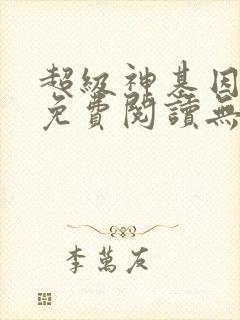 超級神基因
免費閱讀無
李萬友